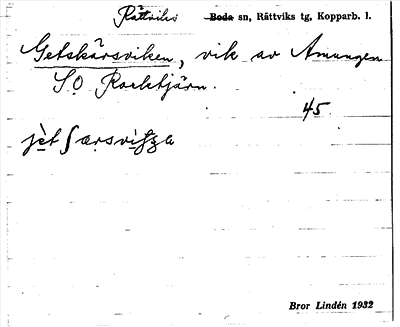 Rättviks Boda sn, Rättviks tg, Kopparb. l.
Getskärsviken, vik av Amungen
SO Rocktjärn.
45.
jèt ʃærsvitʒa
Bror Lindén 1932